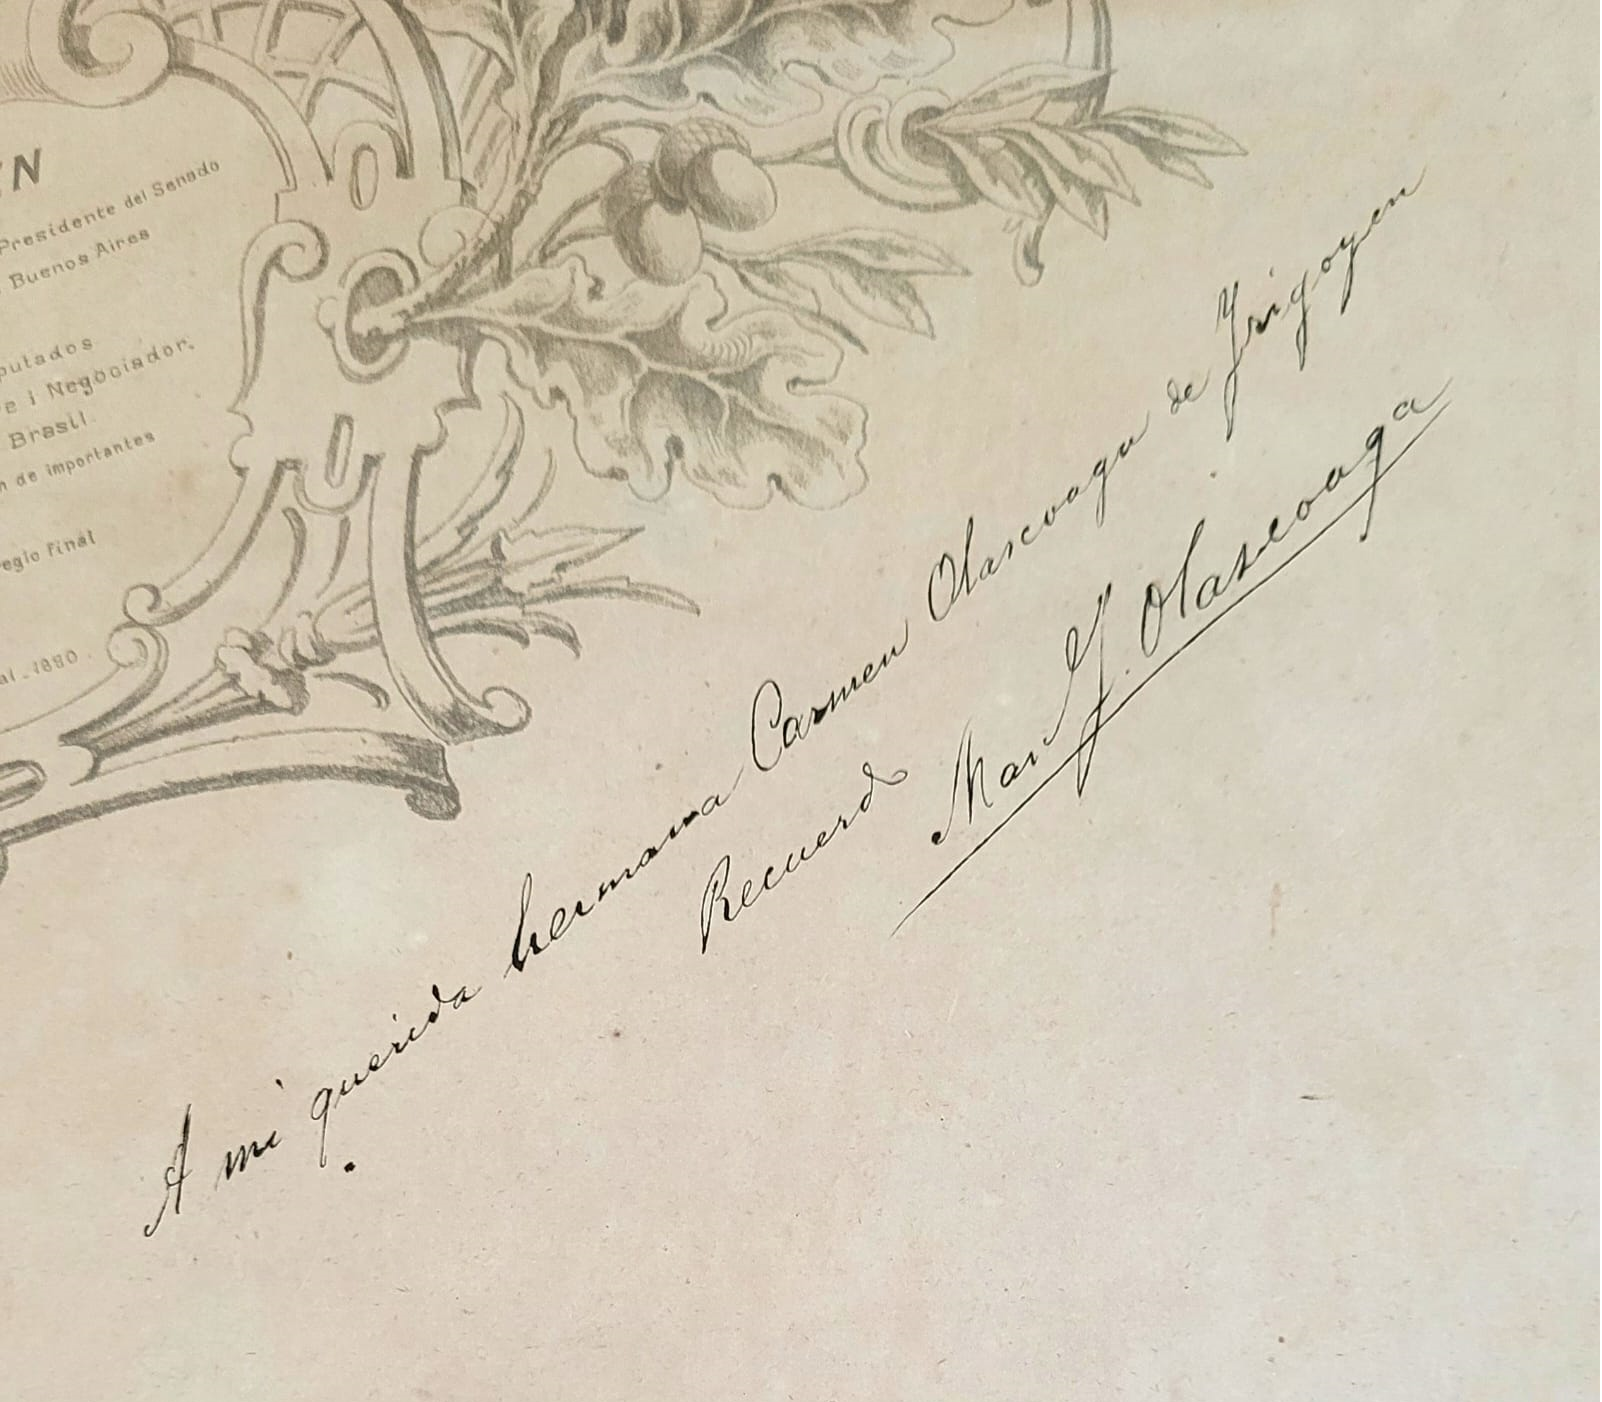 EN
Presidente del Senado
Buenos Aires
putados
e i Negociador.
Brasil.
n de importantes
egio final
al. 1880.
A mi querida hermana Carmen Olascoaga de Yrigoyen
Recuerdo
Man Y. Olascoaga